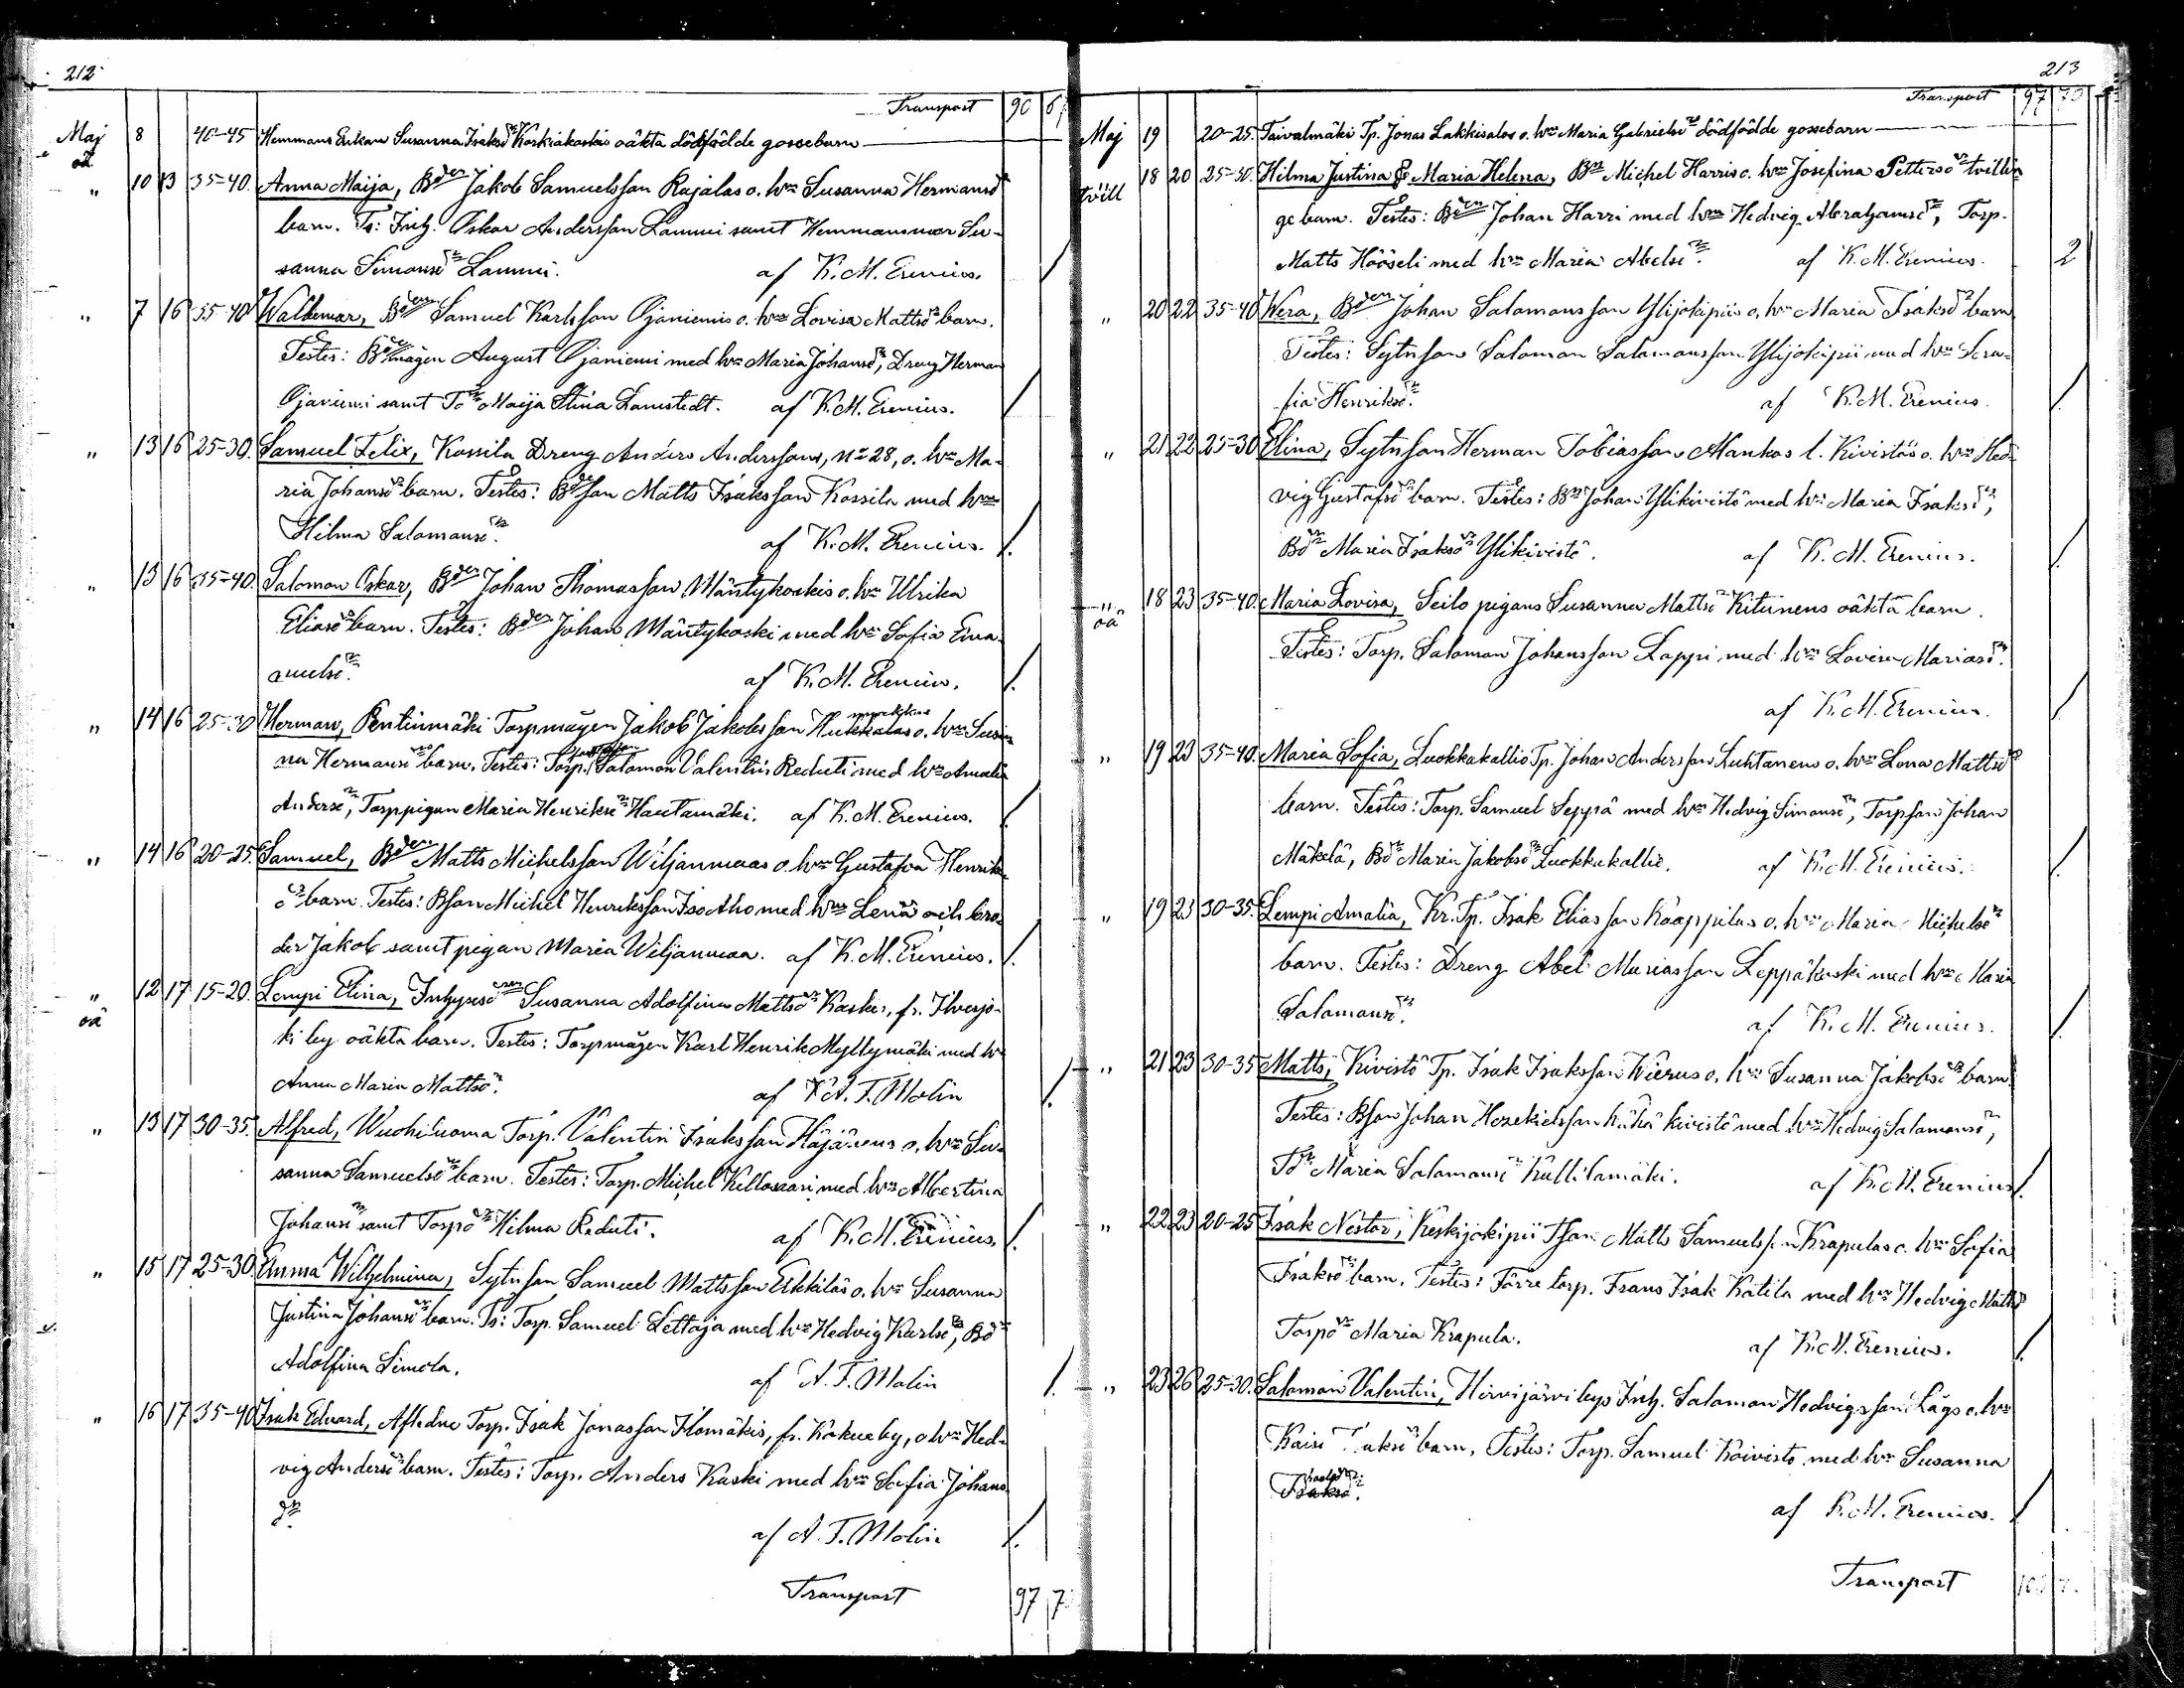 212
Transport 90 67
Maj 8 40-45 Hemmans Enkan Susanna Isaksdr Koskiakoskis oäkta dödfödde gossebarn
oä
" 10 13 35-40. Anna Maija, Bden Jakob Samuelsson Rajalas o. hns Susanna Hermansdr
barn. Ts: Inh. Oskar Andersson Lammi samt Hemmansmor Su-
sanna Simonsdr Lammi. af K. M. Erenius. /
" 7 16 35-40 Waldemar, Bden Samuel Karlsson Ojaniemis o. hns Lovisa Mattsdr barn.
Testes: Bdemågen August Ojaniemi med hru Maria Johansdr, Dreng Herman
Ojaniemi samt Tdr Maija Stina Lamstedt. af K. M. Erenius. /
" 13 16 25-30. Samuel Felix, Kossila Dreng Anders Anderssons, No 28, o. hns Ma-
ria Johansdr barn. Testes: Bdeson Matts Isaksson Kossila med hru
Hilma Salomonsdr. af K. M. Erenius. /.
" 13 16 35-40. Saloman Oskar, Bden Johan Thomasson Mäntykoskis o. hns Ulrika
Eliasdr barn. Testes: Bden Johan Mäntykoski med hru Sofia Ema-
nuelsdr. af K. M. Erenius. /.
" 14 16 25-30 Herman, Penttinmäki Torpmågen Jakob Jakobsson Hukkalas o. hns Susan
na Hermansdr barn. Testes: Torp. Salomon Valentin Reduti med hru Amalia
Andersdr, Torppigan Maria Henriksdr Hautamäki. af K. M. Erenius. /
" 14 16 20-25. Samuel, Bden Matts Michelsson Wiljanmaas o. hns Gustafva Henriks
dr barn. Testes: Bson Michel Henriksson Iso Aho med hru Lena och bro-
der Jakob samt pigan Maria Wiljanmaa. af K. M. Erenius. /.
" 12 17 15-20. Lempi Elina, Inhysesdr Susanna Adolfina Mattsdr Kaskis, fr. Ilvesjo-
oä
ki by oäkta barn. Testes: Torpmågen Karl Henrik Myllymäki med hu
Anna Maria Mattsdr. af A. F. Molin /.
" 13 17 30-35. Alfred, Wuohiluoma Torp. Valentin Isaksson Häjänens o. hns Su-
sanna Samuelsdr barn. Testes: Torp. Michel Kellosaari med hru Albertina
Johansdr samt Torpdr Hilma Reduti. af K. M. Erenius. /.
" 15 17 25-30. Emma Wilhelmina, Sytnson Samuel Mattsson Erkkiläs o. hns Susanna
Justina Johansdr barn. Ts: Torp. Samuel Lettoja med hru Hedvig Karlsdr, Bdr
Adolfina Simola. af A. F. Molin /.
" 16 17 35-40 Isak Edvard, Aflidne Torp. Isak Jonasson Ilomäkis, fr. Koskue by, o hns Hed-
vig Andersdr barn. Testes: Torp. Anders Kaski med hru Sofia Johans
dr. af A. F. Molin /.
Transport 97 7
213
Transport 97 70
Maj 19 20-25. Taivalmäki Tp. Jonas Lakkisalos o. hns Maria Gabrielsdr dödfödde gossebarn
tvill 18 20 25-30. Hilma Justina & Maria Helena, Bdn Michel Harris o. hns Josefina Pettersdr tvillin
ge barn. Testes: Bden Johan Harri med hru Hedvig Abrahamsdr, Torp.
Matts Hööseli med hru Maria Abelsdr. af K. M. Erenius. 2
" 20 22 35-40 Wera, Bden Johan Salomonsson Ylijokipiis o. hns Maria Isaksdr barn
Testes: Sytnson Saloman Salomonsson Ylijokipii med hru Sera-
fia Henriksdr. af K. M. Erenius. /.
" 21 22 25-30 Elina, Sytnson Herman Tobiasson Mankas l. Kivistös o. hns Hed-
vig Gustafsdr barn. Testes: Bdn Johan Ylikivistö med hru Maria Isaksdr,
Bdr Maria Isaksdr Ylikivistö. af K. M. Erenius. /.
" 18 23 35-40. Maria Lovisa, Seilo pigans Susanna Mattsdr Kitunens oäkta barn.
oä
Testes: Torp. Saloman Johansson Lappi med hru Lovisa Mariasdr.
af K. M. Erenius. /.
" 19 23 35-40. Maria Sofia, Luokkakallio Tp. Johan Andersson Luhtanens o. hns Lena Mattsdr
barn. Testes: Torp. Samuel Seppä med hru Hedvig Simonsdr, Torpson Johan
Mäkelä, Bdr Maria Jakobsdr Luokkakallio. af K. M. Erenius. /.
" 19 23 30-35. Lempi Amalia, Kr. Tp. Isak Eliasson Kaappilas o. hns Maria Michelsdr
barn. Testes: Dreng Abel Mariasson Leppäkoski med hru Maria
Salomonsdr. af K. M. Erenius. /.
" 21 23 30-35 Matts, Kivistö Tp. Isak Isaksson Wierus o. hns Susanna Jakobsdr barn
Testes: Bson Johan Hezekielsson Kivistö med hru Hedvig Salomonsdr,
Tdr Maria Salomonsdr Kullilamäki. af K. M. Erenius /.
" 22 23 20-25 Isak Nestor, Keskijokipii Tson Matts Samuelsson Krapulas o. hns Sofia
Isaksdr barn. Testes: Förre torp. Frans Isak Katila med hru Hedvig Mattsdr
Torpdr Maria Krapula. af K. M. Erenius. /.
" 23 26 25-30. Saloman Valentin, Hirvijärvi bys Inh. Saloman Hedvigsson Lågs o. hns
Kaisa Isaksdr barn. Testes: Torp. Samuel Koivisto med hru Susanna
Isaksdr. af K. M. Erenius. /
Transport